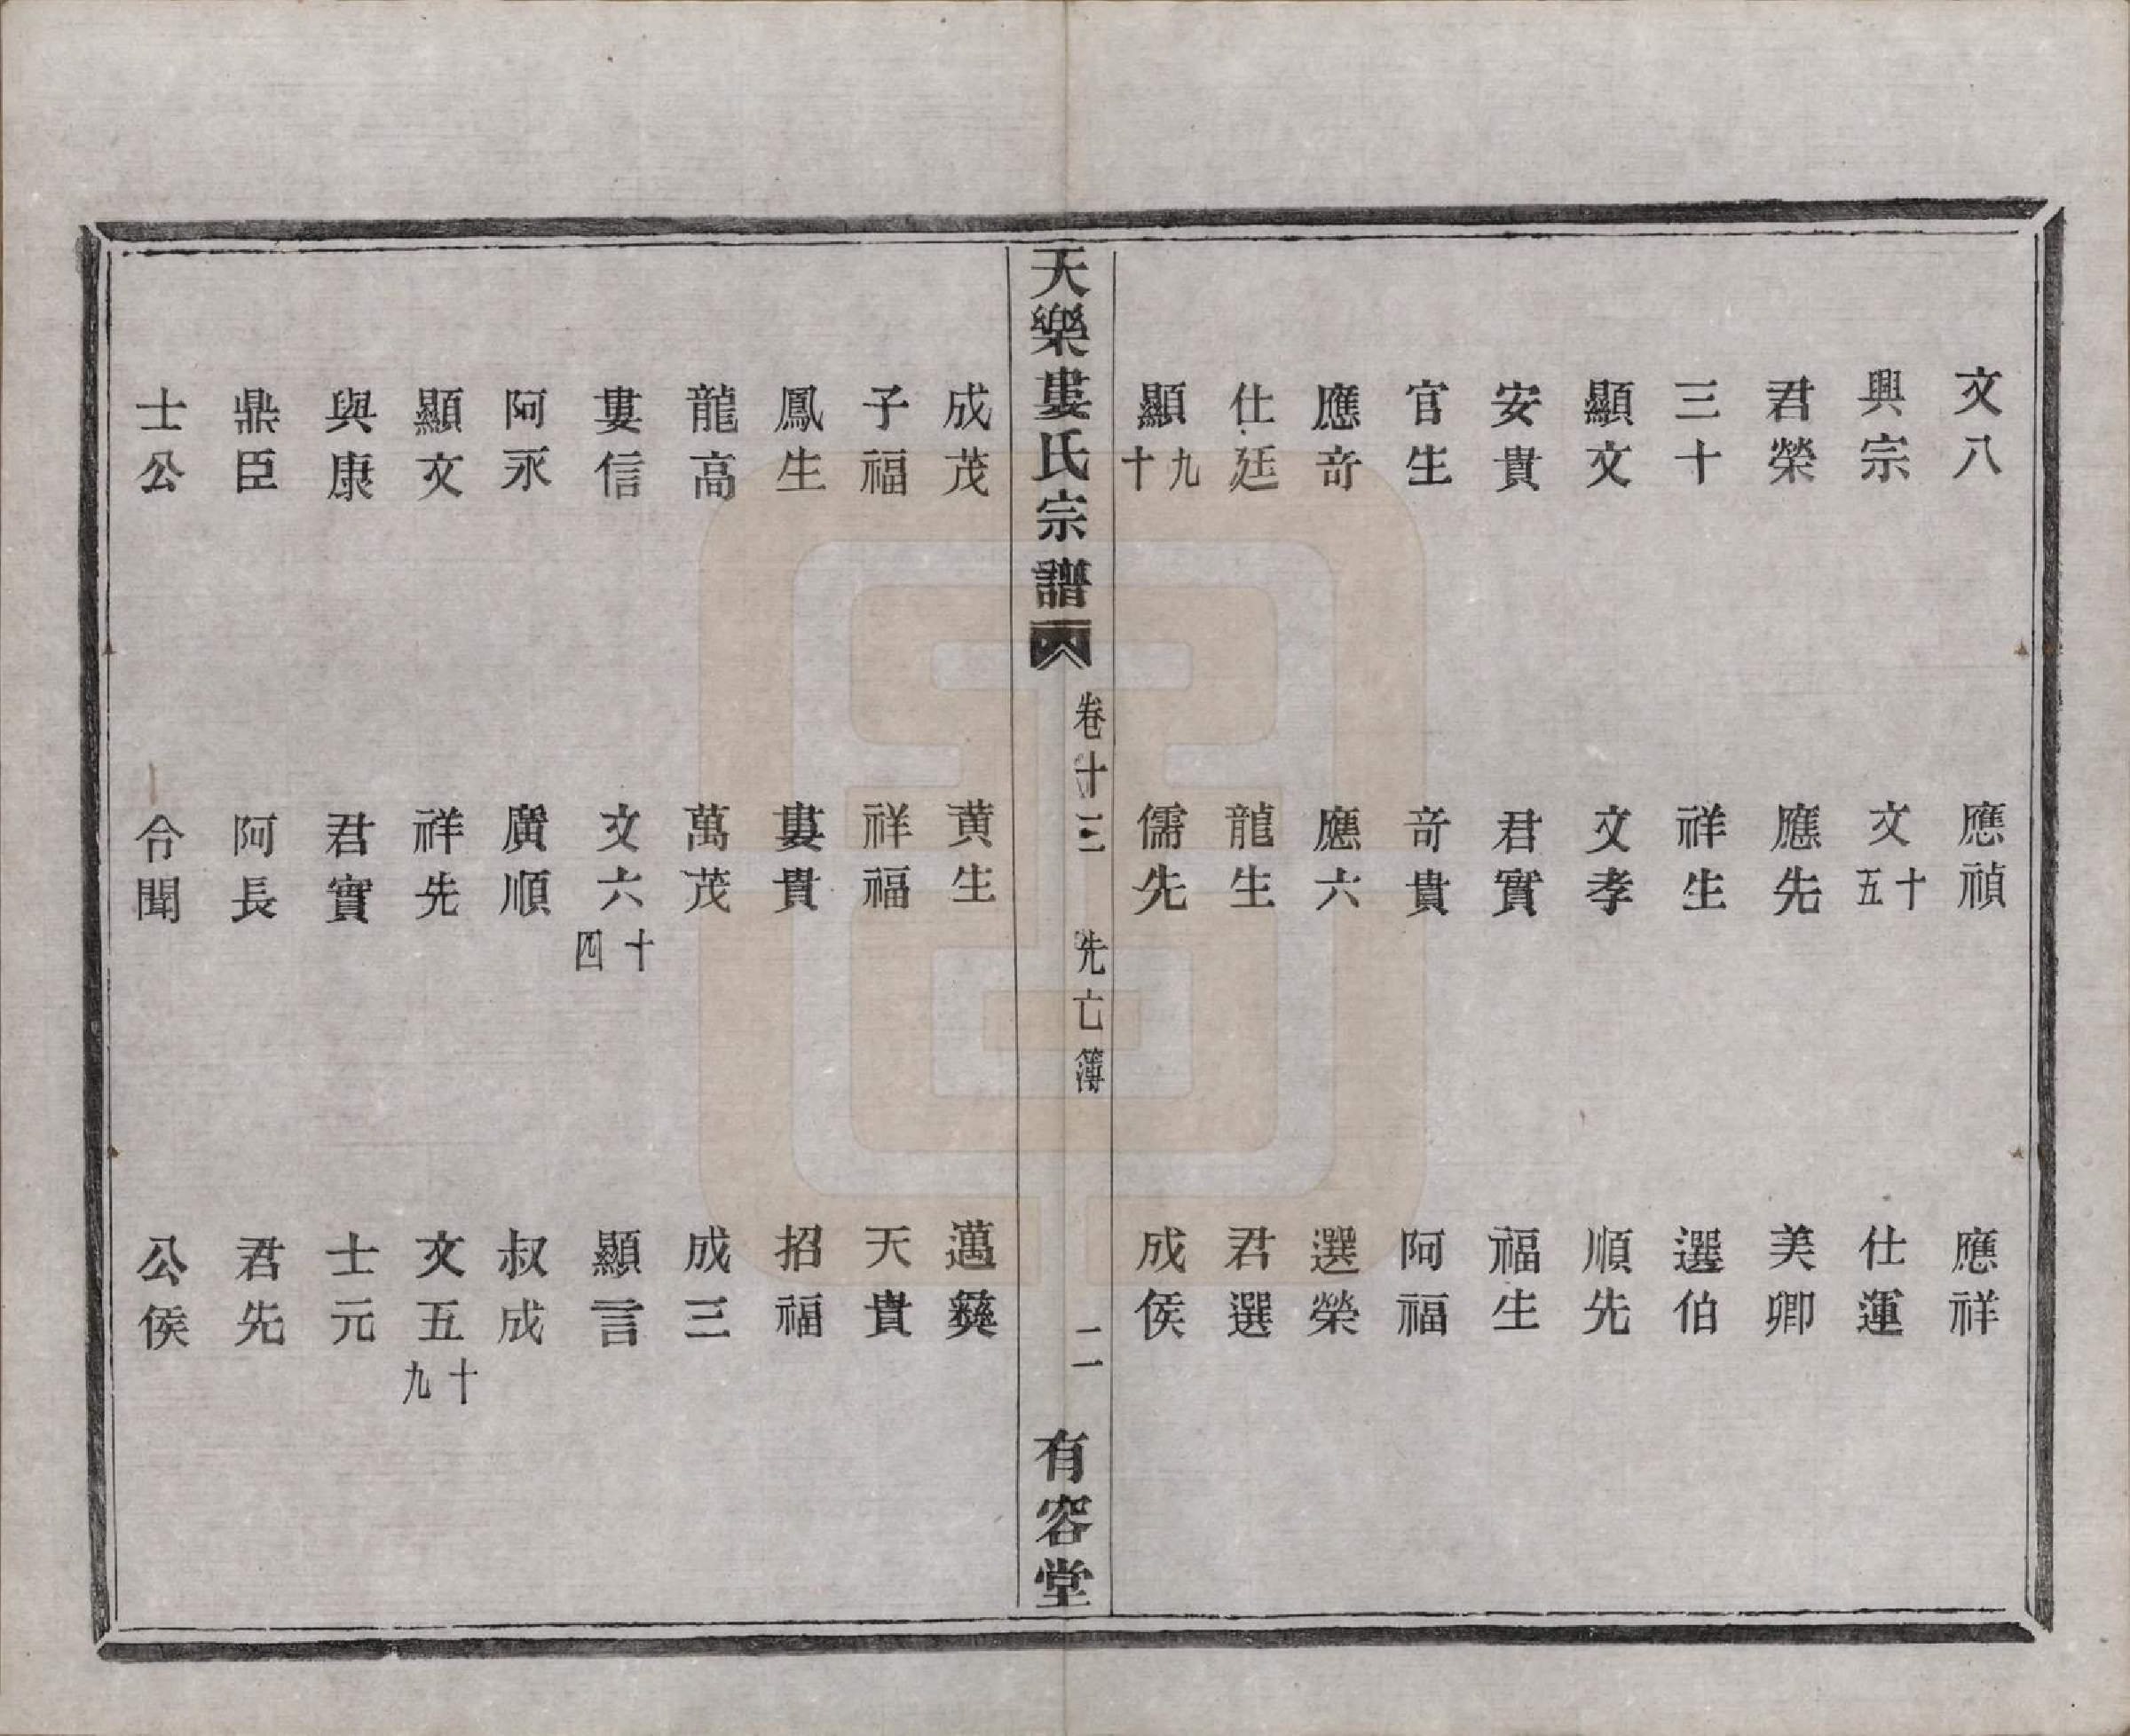 文八　應禎　應祥
興宗　文十五　仕運
君榮　應先　美卿
三十　祥生　選伯
顯文　文孝　順先
安貴　君實　福生
官生　奇貴　阿福
應奇　應六　選榮
仕廷　龍生　君選
顯九十　儒先　成侯
天樂婁氏宗譜　卷十三　先亡簿　二　有容堂
成茂　黄生　邁彝
子福　祥福　天貴
鳳生　婁貴　招福
龍高　萬茂　成三
婁信　文六十四　顯言
阿永　廣順　叔成
顯文　祥先　文五十九
與康　君實　士元
鼎臣　阿長　君先
士公　令聞　公侯